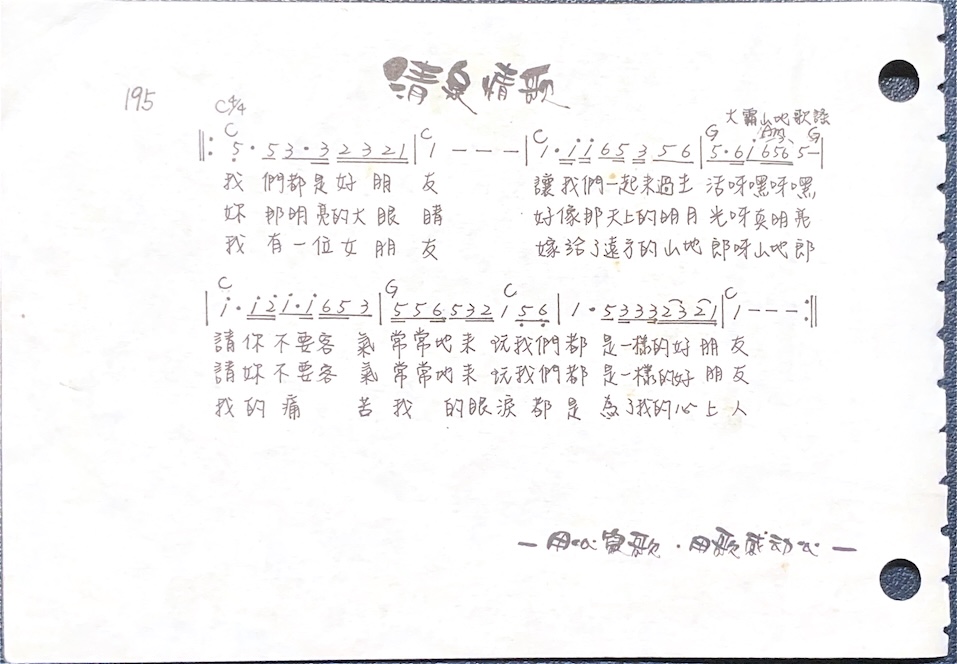 清泉情歌
195 C 4/4
大霸山地歌謠
C C C G Am G
‖: 5· 53·32321 | 1 - - - | 1·1165356 | 5·61656 5- |
我們都是好朋友 讓我們一起來過生活呀嘿呀嘿
妳那明亮的大眼睛 好像那天上的明月光呀真明亮
我有一位女朋友 嫁給了遠方的山地郎呀山地郎
C G C C
| 1·121·1653 | 556532 156 | 1·53332321 | 1 - - - :‖
請你不要客氣常常地來玩我們都是一樣的好朋友
請妳不要客氣常常地來玩我們都是一樣的好朋友
我的痛苦我的眼淚都是為了我的心上人
—用心寫歌·用歌感动心—